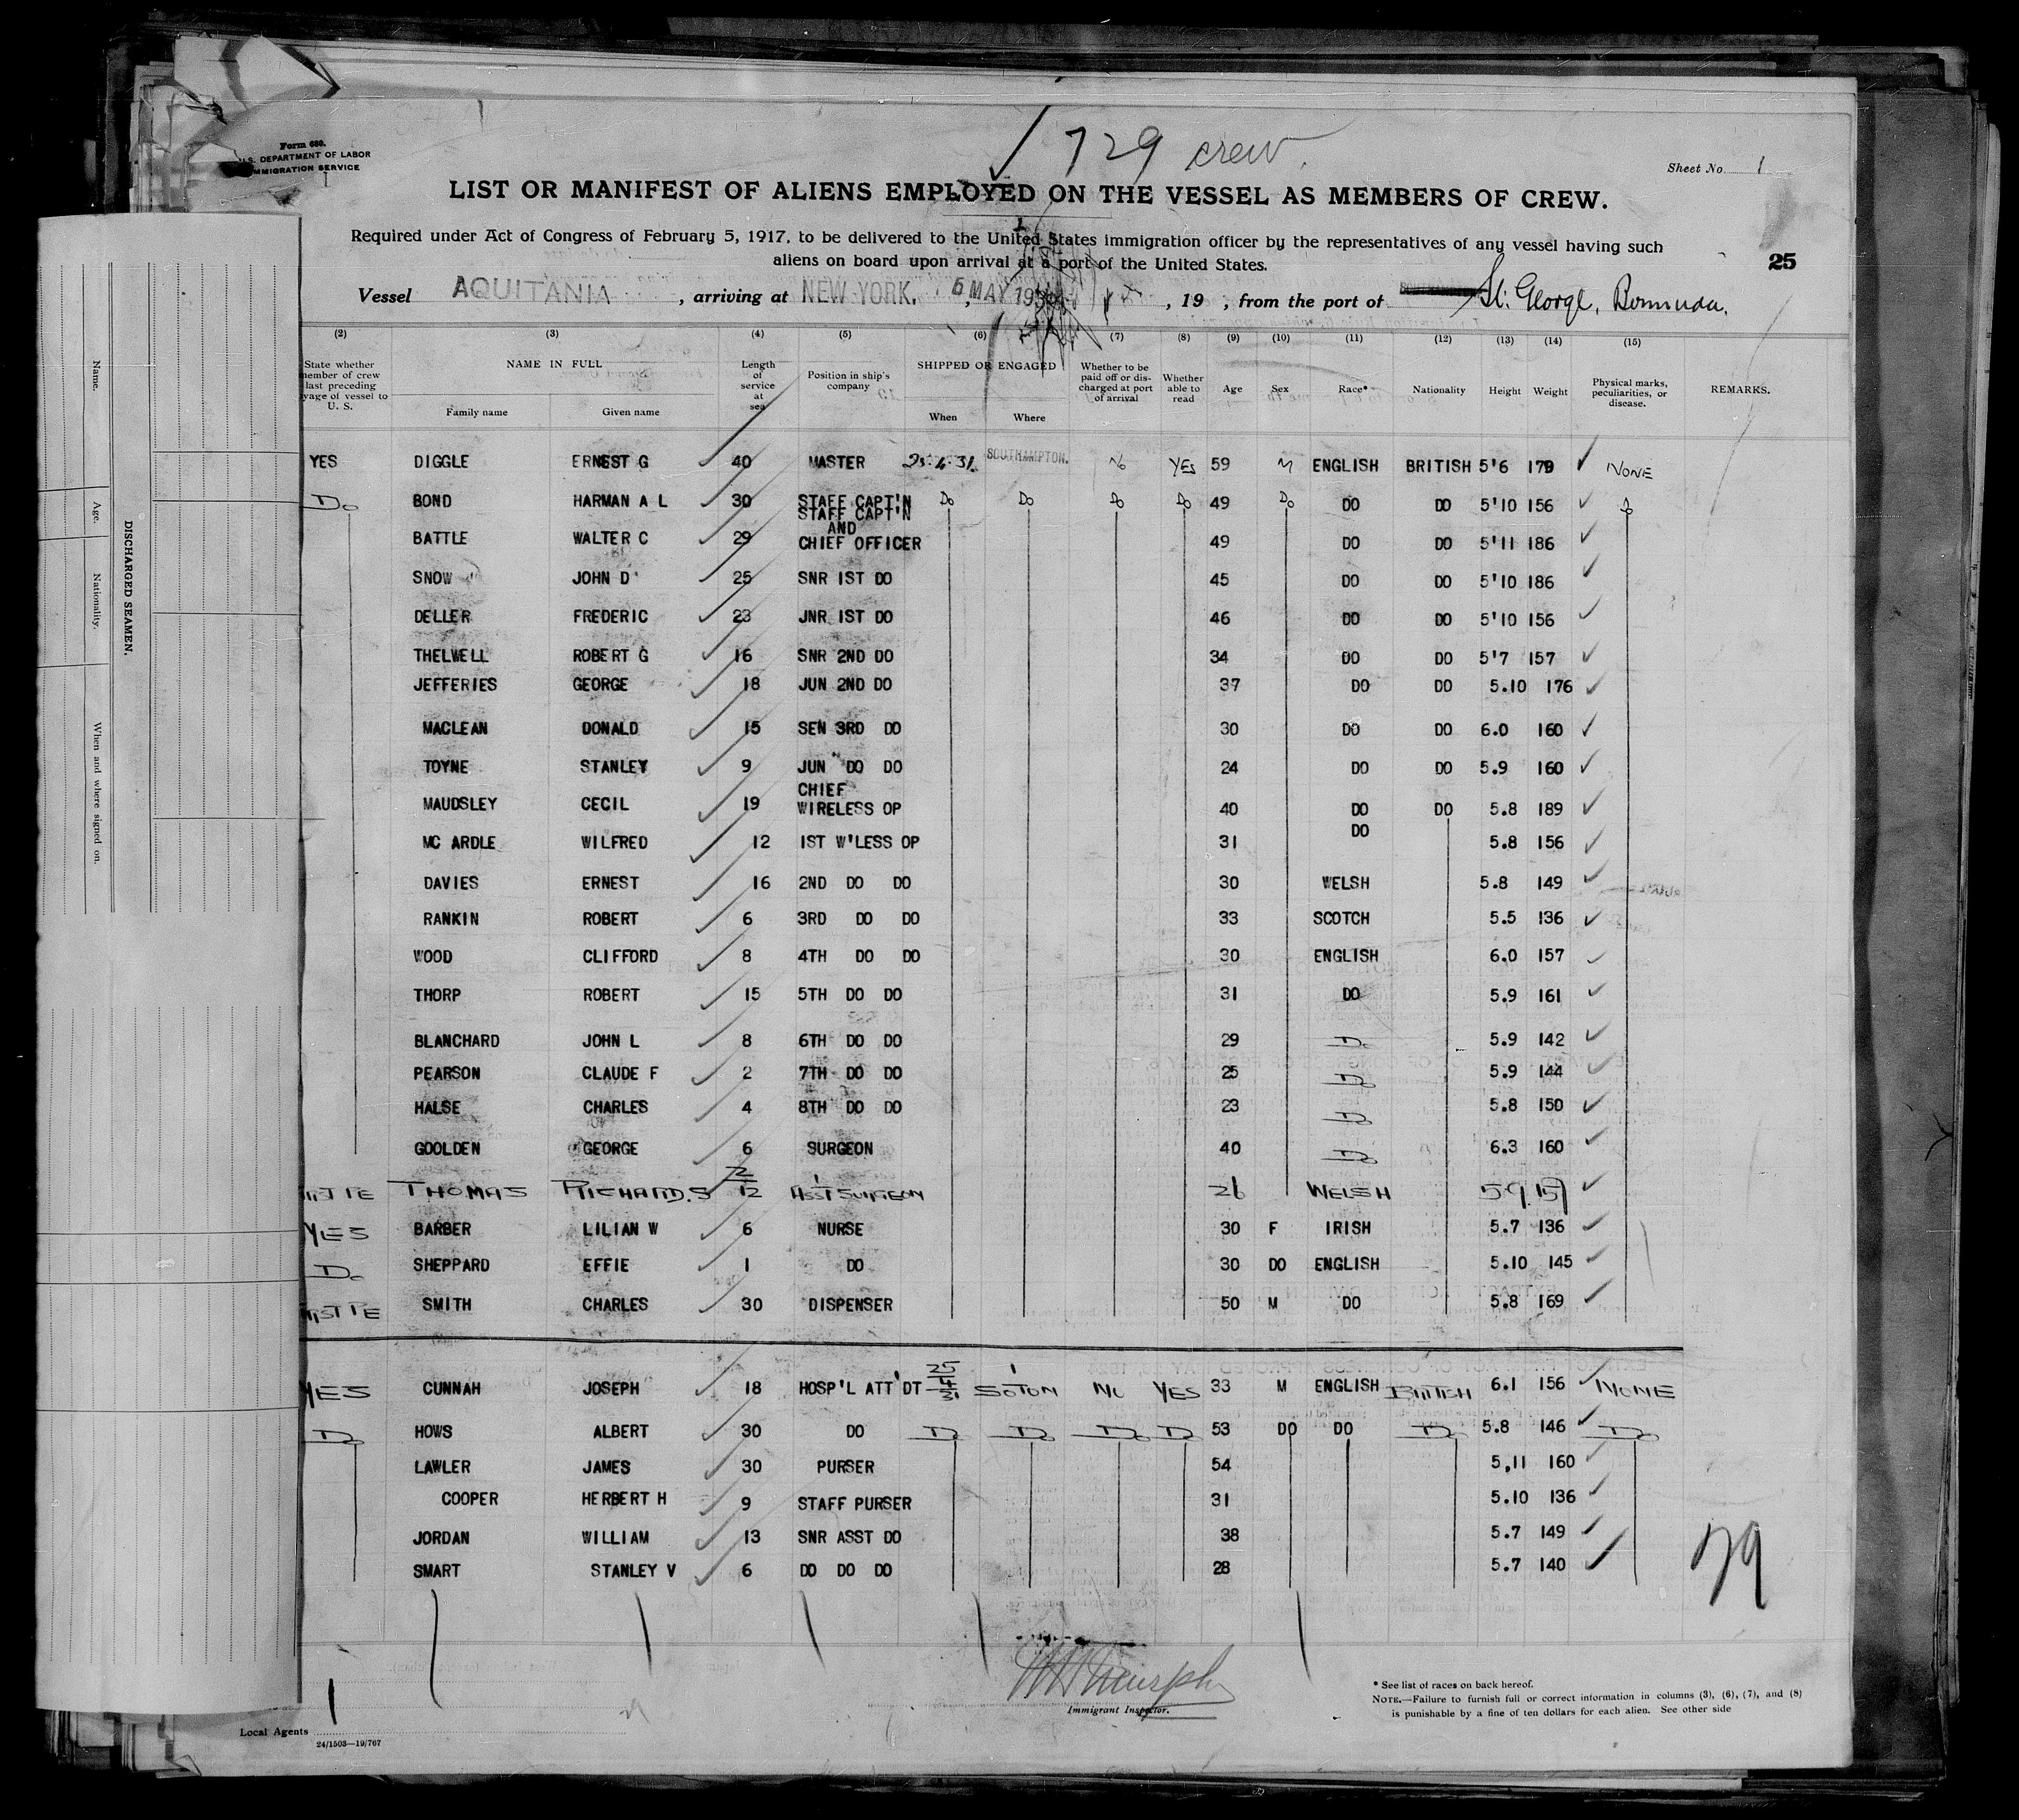 ✓ 729 crew.
Form 680.
U.S. DEPARTMENT OF LABOR
IMMIGRATION SERVICE
Sheet No. 1
LIST OR MANIFEST OF ALIENS EMPLOYED ON THE VESSEL AS MEMBERS OF CREW.
Required under Act of Congress of February 5, 1917, to be delivered to the United States immigration officer by the representatives of any vessel having such
aliens on board upon arrival at a port of the United States.
25
Vessel AQUITANIA, arriving at NEW YORK. 6 MAY 193, 19 , from the port of St. George, Bermuda.
(2) (3) (4) (5) (6) (7) (8) (9) (10) (11) (12) (13) (14) (15)
State whether member of crew last preceding voyage of vessel to U. S. NAME IN FULL Family name Given name Length of service at sea Position in ship's company SHIPPED OR ENGAGED When Where Whether to be paid off or discharged at port of arrival Whether able to read Age Sex Race* Nationality Height Weight Physical marks, peculiarities, or disease. REMARKS.
YES DIGGLE ERNEST G 40 MASTER 25.4.31. SOUTHAMPTON. No YES 59 M ENGLISH BRITISH 5'6 179 NONE
Do BOND HARMAN A L 30 STAFF CAPT'N Do Do Do Do 49 Do DO DO 5'10 156 Do
BATTLE WALTER C 29 STAFF CAPT'N AND CHIEF OFFICER 49 DO DO 5'11 186
SNOW JOHN D 25 SNR 1ST DO 45 DO DO 5'10 186
DELLER FREDERIC 23 JNR 1ST DO 46 DO DO 5'10 156
THELWELL ROBERT G 16 SNR 2ND DO 34 DO DO 5'7 157
JEFFERIES GEORGE 18 JUN 2ND DO 37 DO DO 5.10 176
MACLEAN DONALD 15 SEN 3RD DO 30 DO DO 6.0 160
TOYNE STANLEY 9 JUN DO DO 24 DO DO 5.9 160
MAUDSLEY CECIL 19 CHIEF WIRELESS OP 40 DO DO 5.8 189
MC ARDLE WILFRED 12 1ST W'LESS OP 31 DO 5.8 156
DAVIES ERNEST 16 2ND DO DO 30 WELSH 5.8 149
RANKIN ROBERT 6 3RD DO DO 33 SCOTCH 5.5 136
WOOD CLIFFORD 8 4TH DO DO 30 ENGLISH 6.0 157
THORP ROBERT 15 5TH DO DO 31 DO 5.9 161
BLANCHARD JOHN L 8 6TH DO DO 29 Do 5.9 142
PEARSON CLAUDE F 2 7TH DO DO 25 Do 5.9 144
HALSE CHARLES 4 8TH DO DO 23 Do 5.8 150
GOOLDEN GEORGE 6 SURGEON 40 Do 6.3 160
THOMAS RICHARD.S 2/12 ASST SURGEON 26 WELSH 5.9 157
YES BARBER LILIAN W 6 NURSE 30 F IRISH 5.7 136
Do SHEPPARD EFFIE 1 DO 30 DO ENGLISH 5.10 145
SMITH CHARLES 30 DISPENSER 50 M DO 5.8 169
YES CUNNAH JOSEPH 18 HOSP'L ATT'DT 25/4/31 SOTON NO YES 33 M ENGLISH BRITISH 6.1 156 NONE
Do HOWS ALBERT 30 DO Do Do Do Do 53 DO DO Do 5.8 146 Do
LAWLER JAMES 30 PURSER 54 5,11 160
COOPER HERBERT H 9 STAFF PURSER 31 5.10 136
JORDAN WILLIAM 13 SNR ASST DO 38 5.7 149
SMART STANLEY V 6 DO DO DO 28 5.7 140
29
Immigrant Inspector.
* See list of races on back hereof.
NOTE.—Failure to furnish full or correct information in columns (3), (6), (7), and (8)
is punishable by a fine of ten dollars for each alien. See other side
Local Agents
24/1503—19/767
DISCHARGED SEAMEN.
Name.
Age.
Nationality.
When and where signed on.